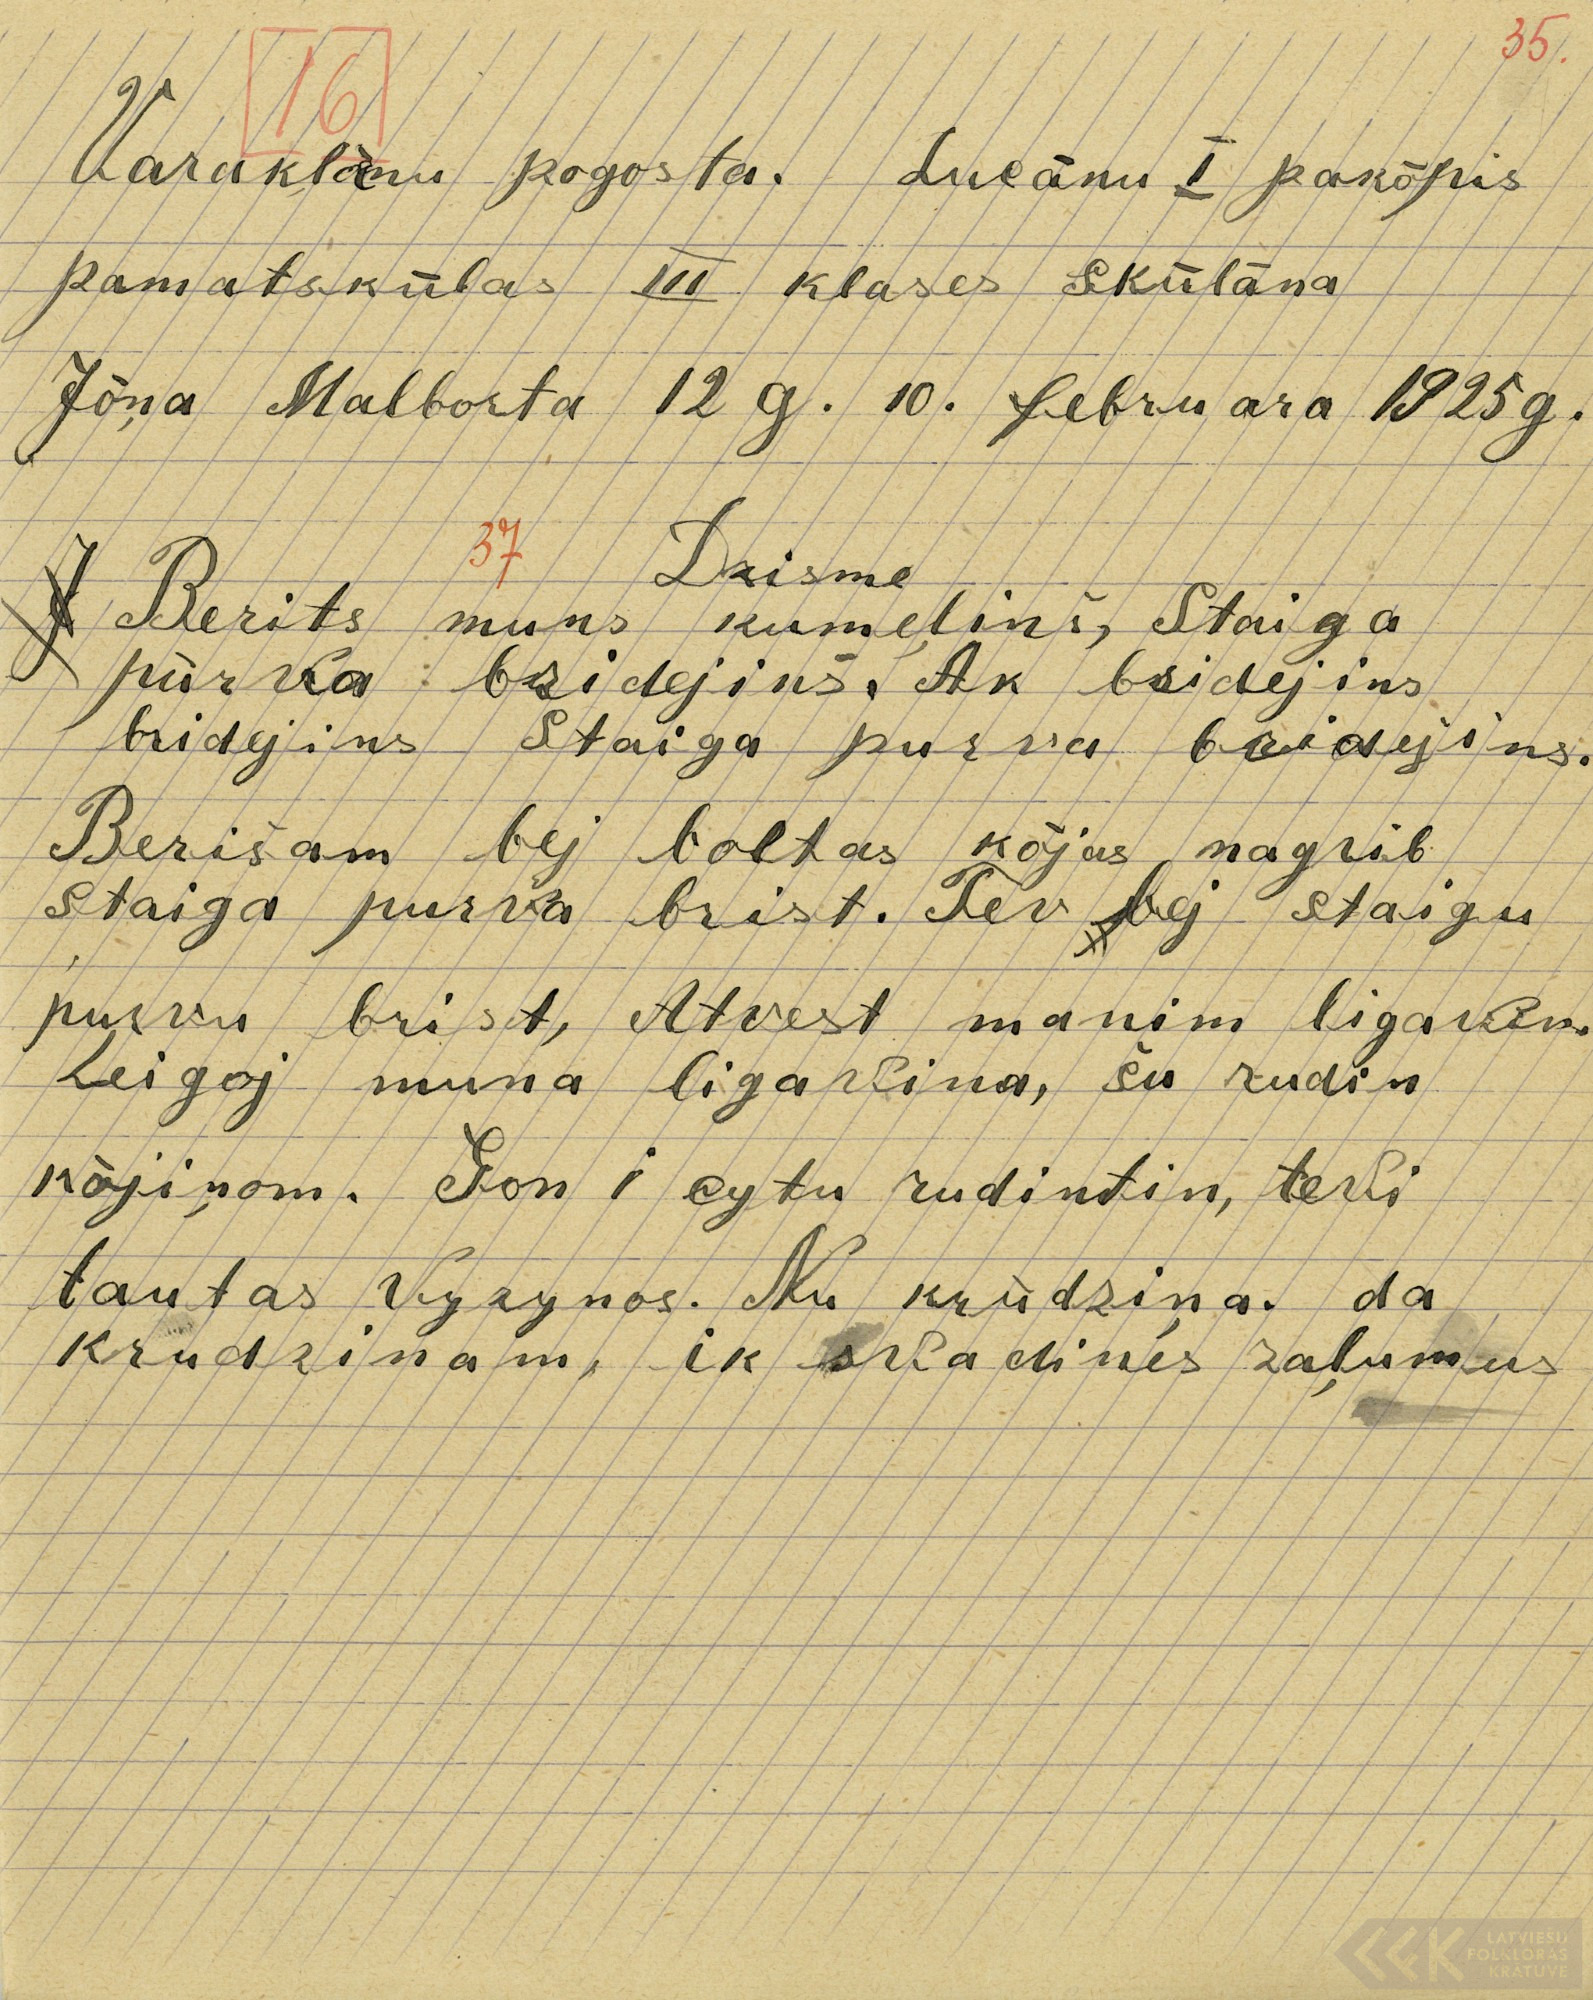 35.
16
Varaklānu pogosta. Lucānu I pakōpis
pamatskūlas III klases skūlāna
Jōņa Malborta 12 g. 10. februara 1925 g.
37 Dzisme
Berits muns kumeļinš, Staiga
pūrva bridejinš. Ak bridejins
bridejins Staiga purva bridejins.
Berišam bej boltas kōjas nagrib
staiga purva brist. Tev bej staigu
purvu brist, Atvest manim ligaviņ.
Leigoj muna ligavina, šu rudin
kōjiņom. Jon i cytu rudintin, tevi
tautas Vyzynos. Nu krūdziņa. da
krudzinam, ik skadinés zaļumus
LATVIEŠU
FOLKLORAS
KRĀTUVE